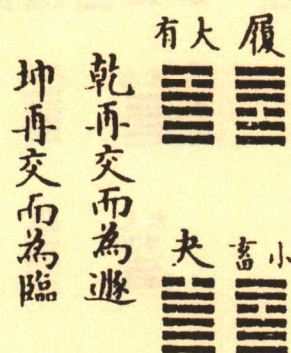 履
大有
小畜
夬
乾再交而為遯
坤再交而為臨